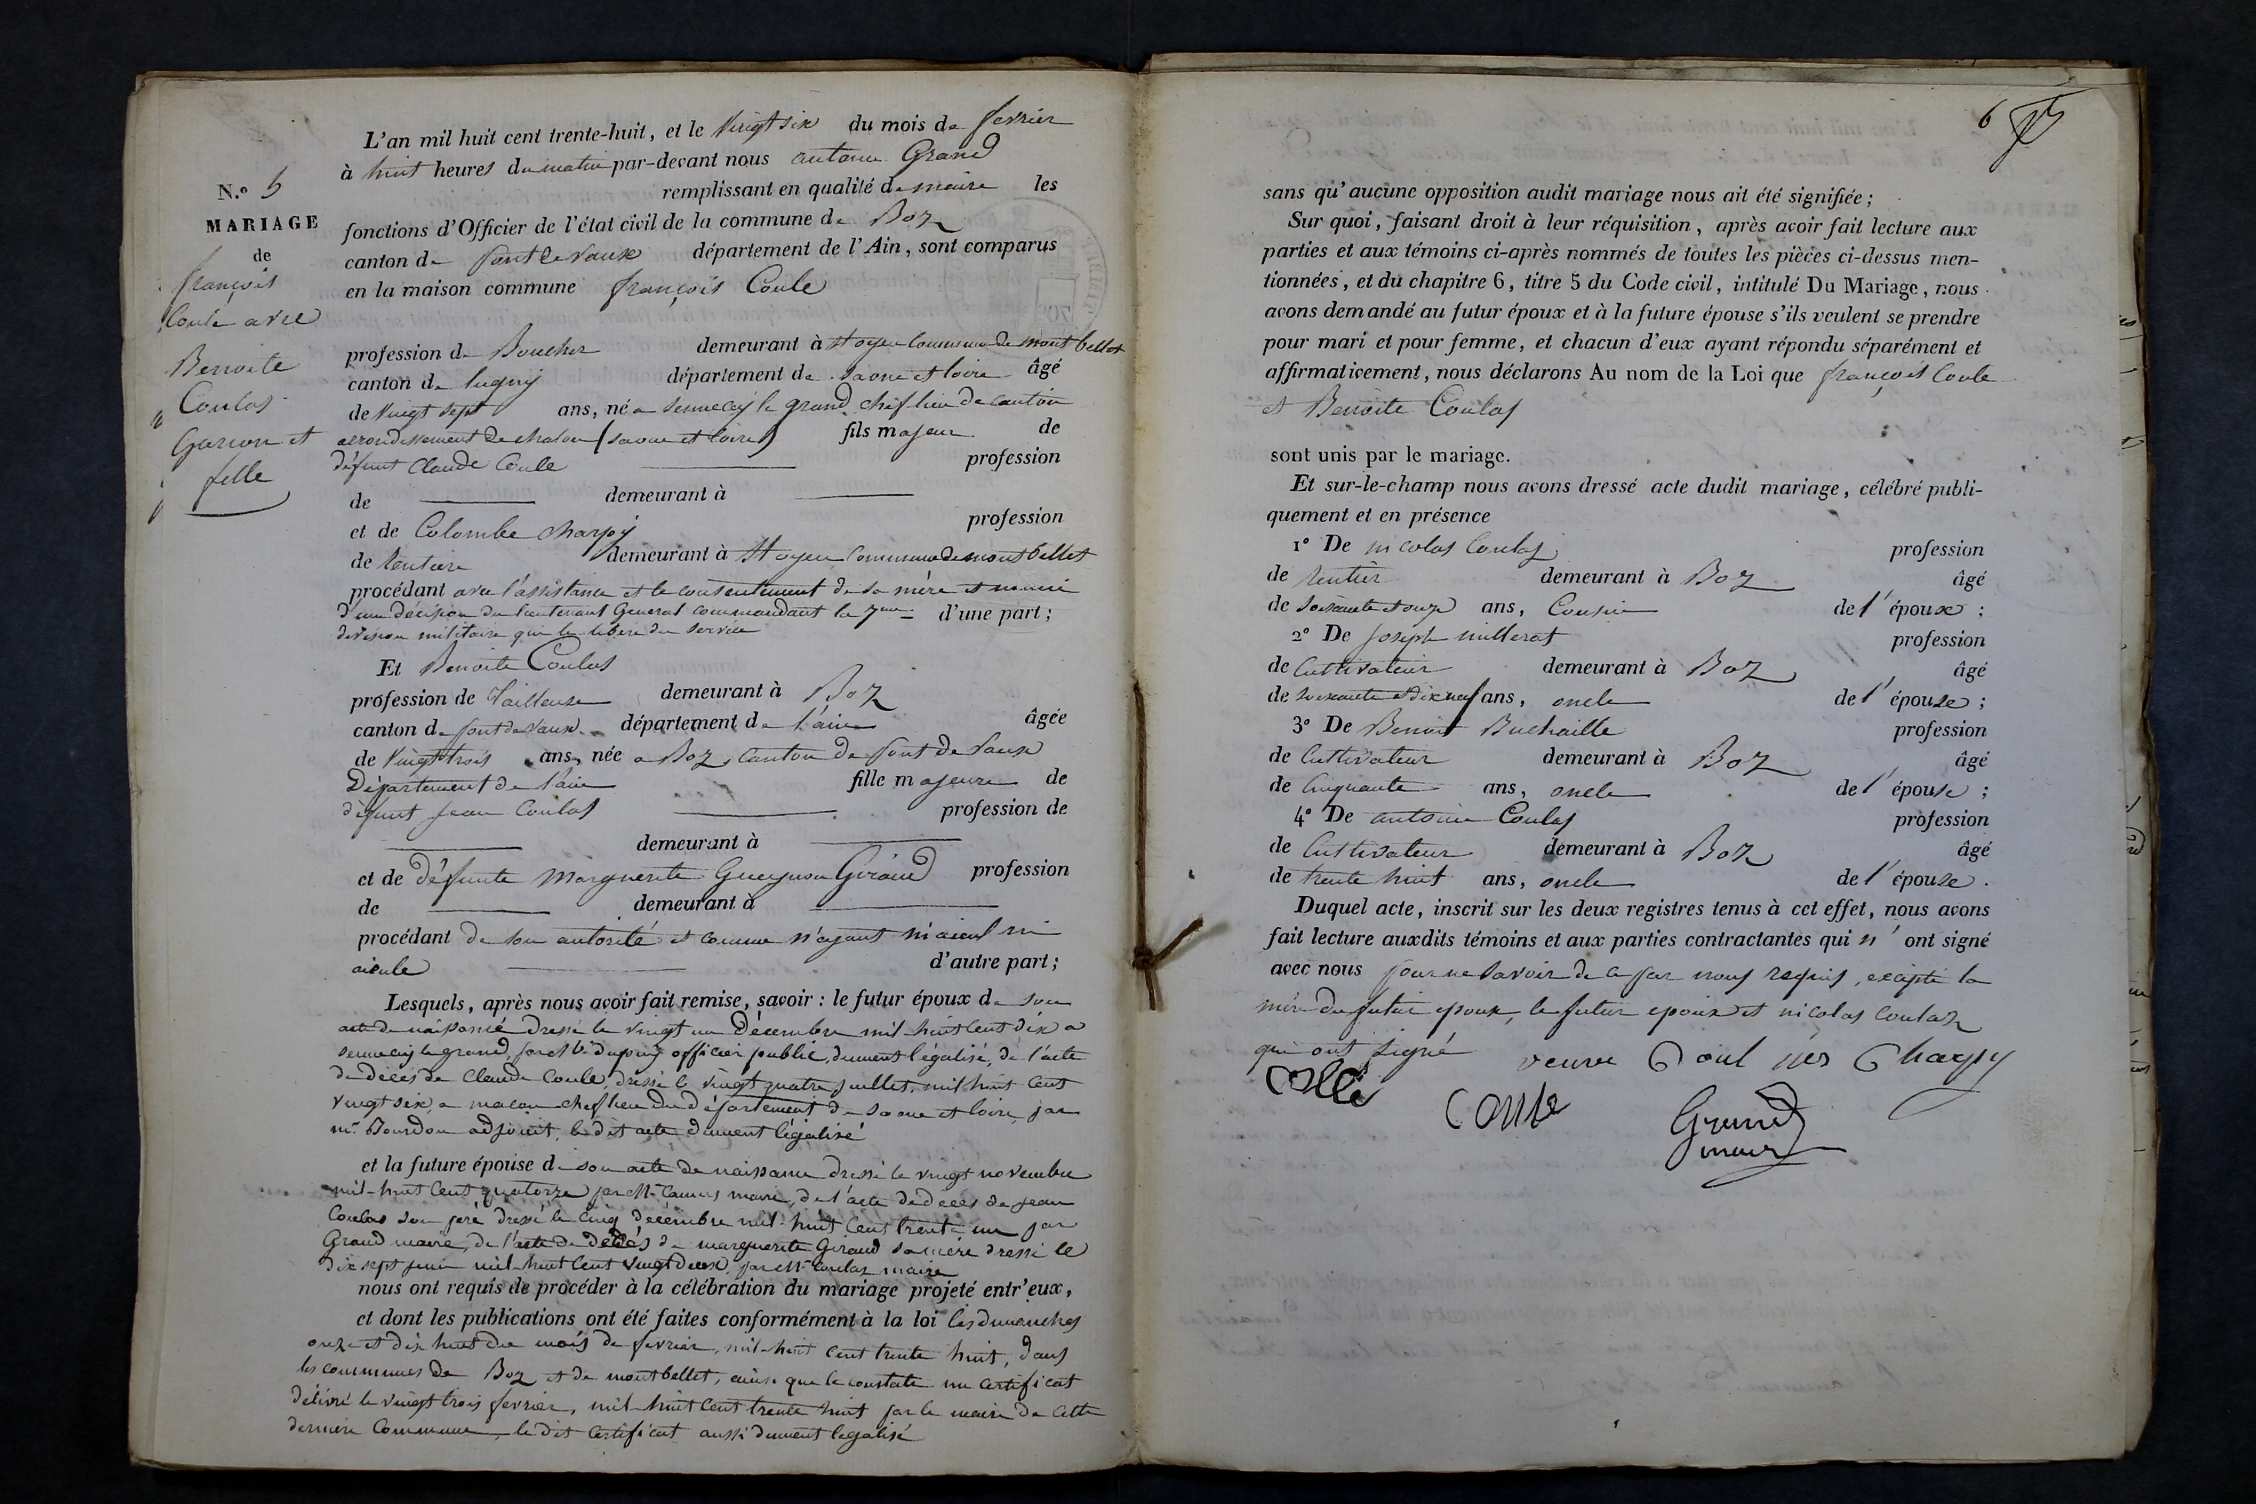 L'an mil huit cent trente-huit, et le vingt six du mois de fevrier
à huit heures du matin par-devant nous antoine Grand
remplissant en qualité de maire les
fonctions d'Officier de l'état civil de la commune de Boz
canton de pont de vaux département de l'Ain, sont comparus
en la maison commune françois Coule
profession de Boucher demeurant à St oyen commune de mont bellet
canton de lugny département de Saone et loire âgé
de vingt sept ans, né a Sennecey le grand chef lieu de canton
arrondissement de chalon (saone et loire) fils majeur de
défunt Claude Coule profession
de demeurant à
et de Colombe charpy profession
de rentiere demeurant à St oyen commune de mont bellet
procédant avec l'assistance et le consentement de sa mère et muni
d'une décision du lieutenant General commandant la 7me d'une part;
division militaire qui le libere du service
Et Benoite Coulas
profession de Tailleuse demeurant à Boz
canton de pont de vaux département de l'ain âgée
de vingt trois ans, née a Boz, canton de pont de vaux
Département de l'ain fille majeure de
défunt jean Coulas profession de
demeurant à
et de défunte marguerite Gueynon Giraud profession
de demeurant à
procédant de son autorité et comme n'ayant ni aieul ni
aieule d'autre part;
Lesquels, après nous avoir fait remise, savoir : le futur époux de son
acte de naissance dressé le vingt un décembre mil huit cent dix a
sennecey le grand, par officier public, dument légalisé, de l'acte
de décès de Claude Coule, dressé le vingt quatre juillet, mil huit cent
vingt six, a macon chef lieu du département de saone et loire, par
mr Bourdon adjoint, le dit acte dument légalisé
et la future épouse de son acte de naissance dressé le vingt novembre
mil-huit cent quatorze par Mr maire, de l'acte de décès de jean
Coulas son père dressé le cinq décembre mil-huit cent trente un par
Grand maire, de l'acte de décès de marguerite Giraud sa mère dressé le
dix sept juin mil-huit cent vingt deux, par Mr Coulas maire
nous ont requis de procéder à la célébration du mariage projeté entr'eux,
et dont les publications ont été faites conformément à la loi les dimanches
onze et dix huit du mois de fevrier, mil-huit cent trente huit, dans
les communes de Boz et de montbellet, ainsi que le constate un certificat
délivré le vingt trois fevrier, mil-huit cent trente huit par le maire de cette
derniere commune, le dit certificat aussi dument legalisé
N.º 5
MARIAGE
de
françois
Coule avec
Benoite
Coulas
Garcon et
fille
6
sans qu'aucune opposition audit mariage nous ait été signifiée;
Sur quoi, faisant droit à leur réquisition, après avoir fait lecture aux
parties et aux témoins ci-après nommés de toutes les pièces ci-dessus men-
tionnées, et du chapitre 6, titre 5 du Code civil, intitulé Du Mariage, nous
avons demandé au futur époux et à la future épouse s'ils veulent se prendre
pour mari et pour femme, et chacun d'eux ayant répondu séparément et
affirmativement, nous déclarons Au nom de la Loi que françois Coule
et Benoite Coulas
sont unis par le mariage.
Et sur-le-champ nous avons dressé acte dudit mariage, célébré publi-
quement et en présence
1º De nicolas Coulas profession
de rentier demeurant à Boz âgé
de soixante et onze ans, Cousin de l'époux;
2º De joseph millerat profession
de Cultivateur demeurant à Boz âgé
de soixante et dix neuf ans, oncle de l'épouse;
3º De Benoit Buchaille profession
de Cultivateur demeurant à Boz âgé
de Cinquante ans, oncle de l'épouse;
4º De antoine Coulas profession
de Cultivateur demeurant à Boz âgé
de trente huit ans, oncle de l'épouse.
Duquel acte, inscrit sur les deux registres tenus à cet effet, nous avons
fait lecture auxdits témoins et aux parties contractantes qui n'ont signé
avec nous pour ne savoir de ce par nous requis, excepté la
mère du futur epoux, le futur epoux et nicolas coulas
qui ont signé veuve Coul nés Charpy
Colla Coule Grand
maire